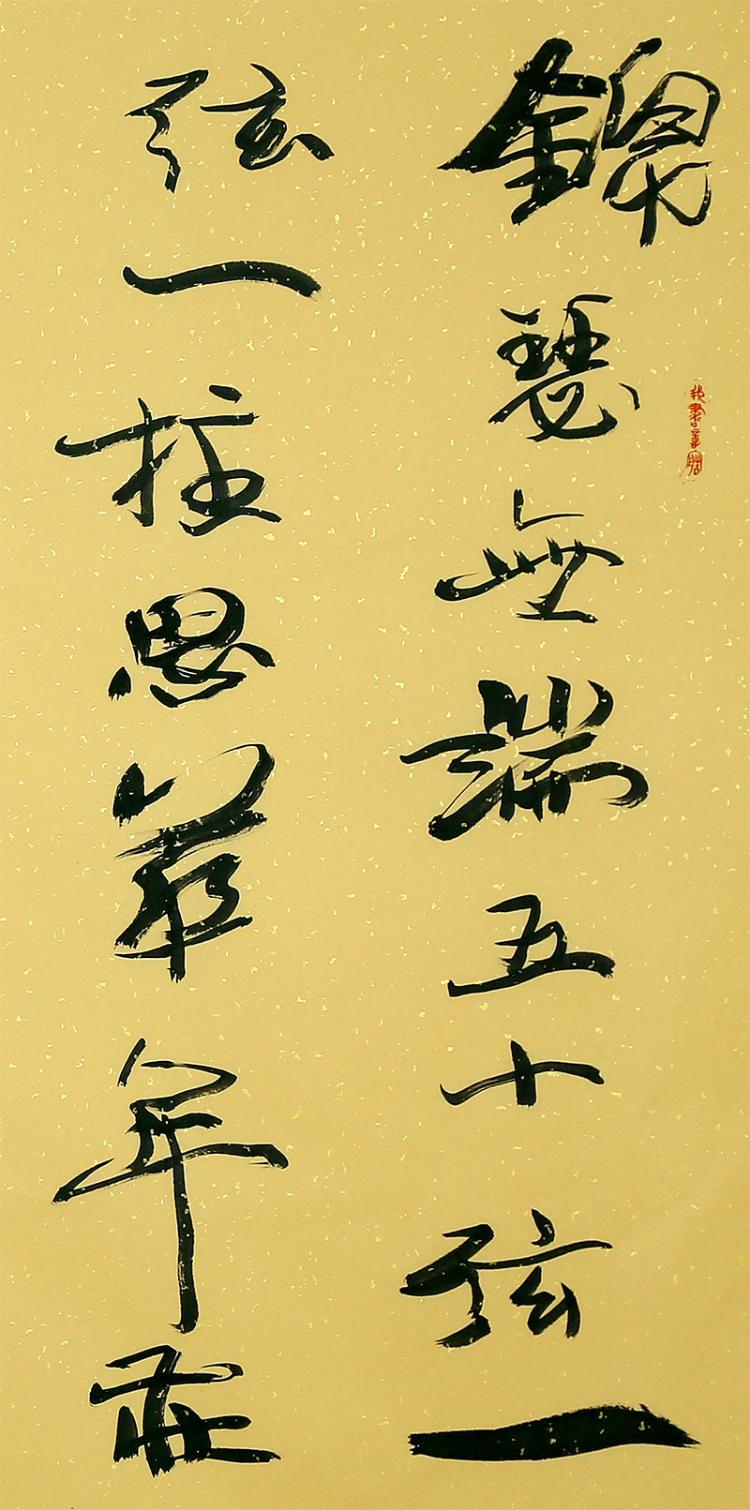 錦瑟無端五十弦一
弦一柱思華年莊